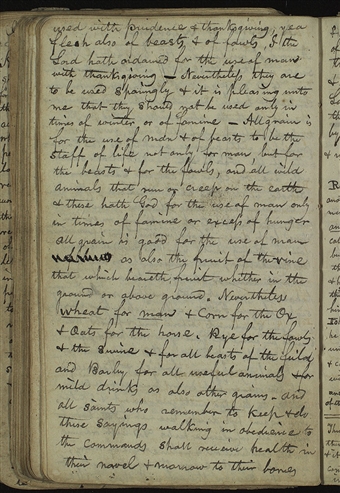 used with prudence & thanksgiving, yea
flesh also of beasts & of fowls, I the
Lord hath ordained for the use of man
with thanksgiving – Nevertheless they are
to be used sparingly & it is pleasing unto
me that they should not be used only in
times of winter or of famine – All grain is
for the use of man & of beasts to be the
staff of life not only for man but for
the beasts & for the fowls, and all wild
animals that run or creep on the earth
& these hath God for the use of man only
in times of famine or excess of hunger
all grain is good for the use of man
as also the fruit of the vine
that which beareth fruit whether in the
ground or above ground. Nevertheless
wheat for man & Corn for the Ox
& Oats for the horse. Rye for the fowls
& the Swine & for all beasts of the field
and Barley for all useful animals & for
mild drinks as also other grains. and
all saints who remember to keep & do
these sayings walking in obedience to
the commands shall receive health in
their navel & marrow to their bones